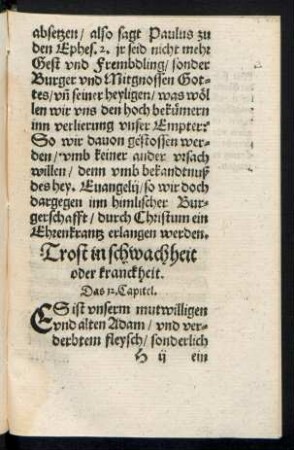 absetzen / also sagt Paulus zu
den Ephes. 2. jr seid nicht mehr
Gest vnd Frembdling / sonder
Burger vnd Mitgnossen Got-
tes / vñ seiner heyligen / was wöl
len wir vns den hoch bekümern
inn verlierung vnser Empter?
So wir dauon gestossen wer-
den / vmb keiner ander vrsach
willen / denn vmb bekandtnuß
des hey. Euangelij / so wir doch
dargegen inn himlischer Bur-
gerschafft / durch Christum ein
Ehrenkrantz erlangen werden.
Trost in schwachheit
oder kranckheit.
Das 12. Capitel.
ES ist vnserm mutwilligen
vnd alten Adam / vnd ver-
derbtem fleysch / sonderlich
H ij ein